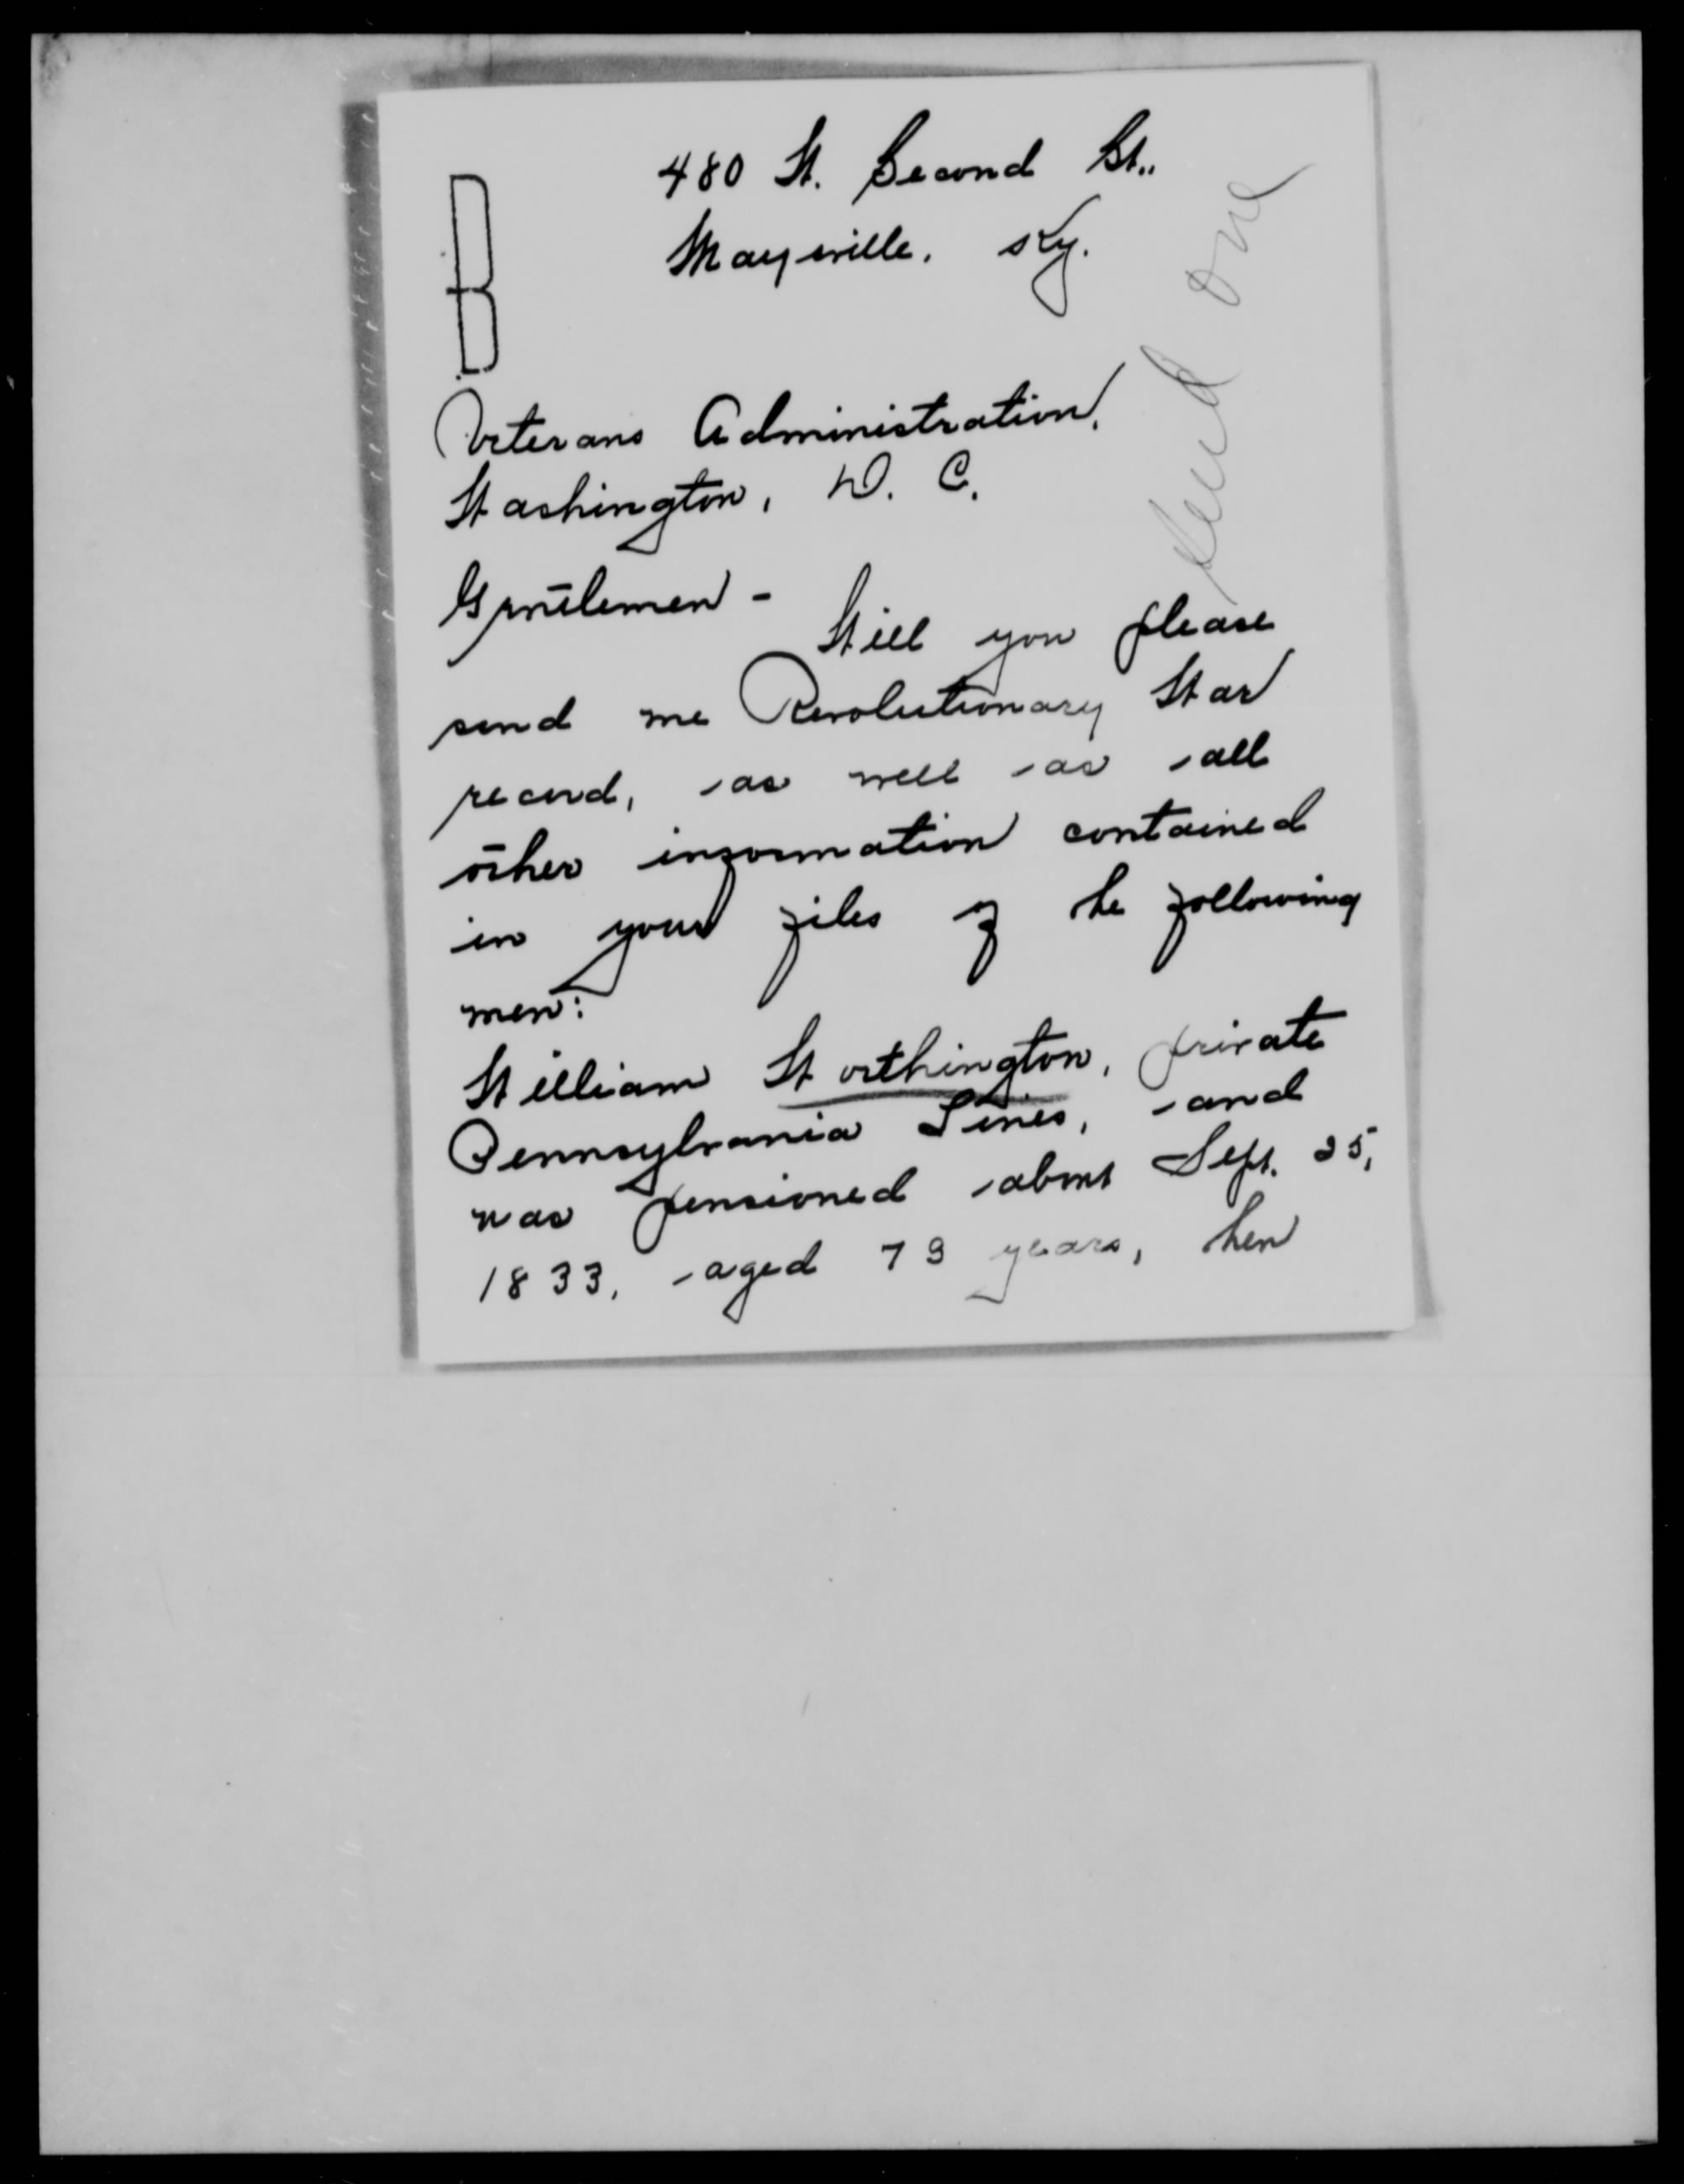 480 W. Second St.,
Maysville, Ky.
B
Veterans Administration,
Washington, D. C.
Gentlemen -
Will you please
send me Revolutionary War
record, as well as all
other information contained
in your files of the following
men:
William Worthington, private
Pennsylvania Lines, and
was pensioned about Sept. 25,
1833, aged 73 years, then
one